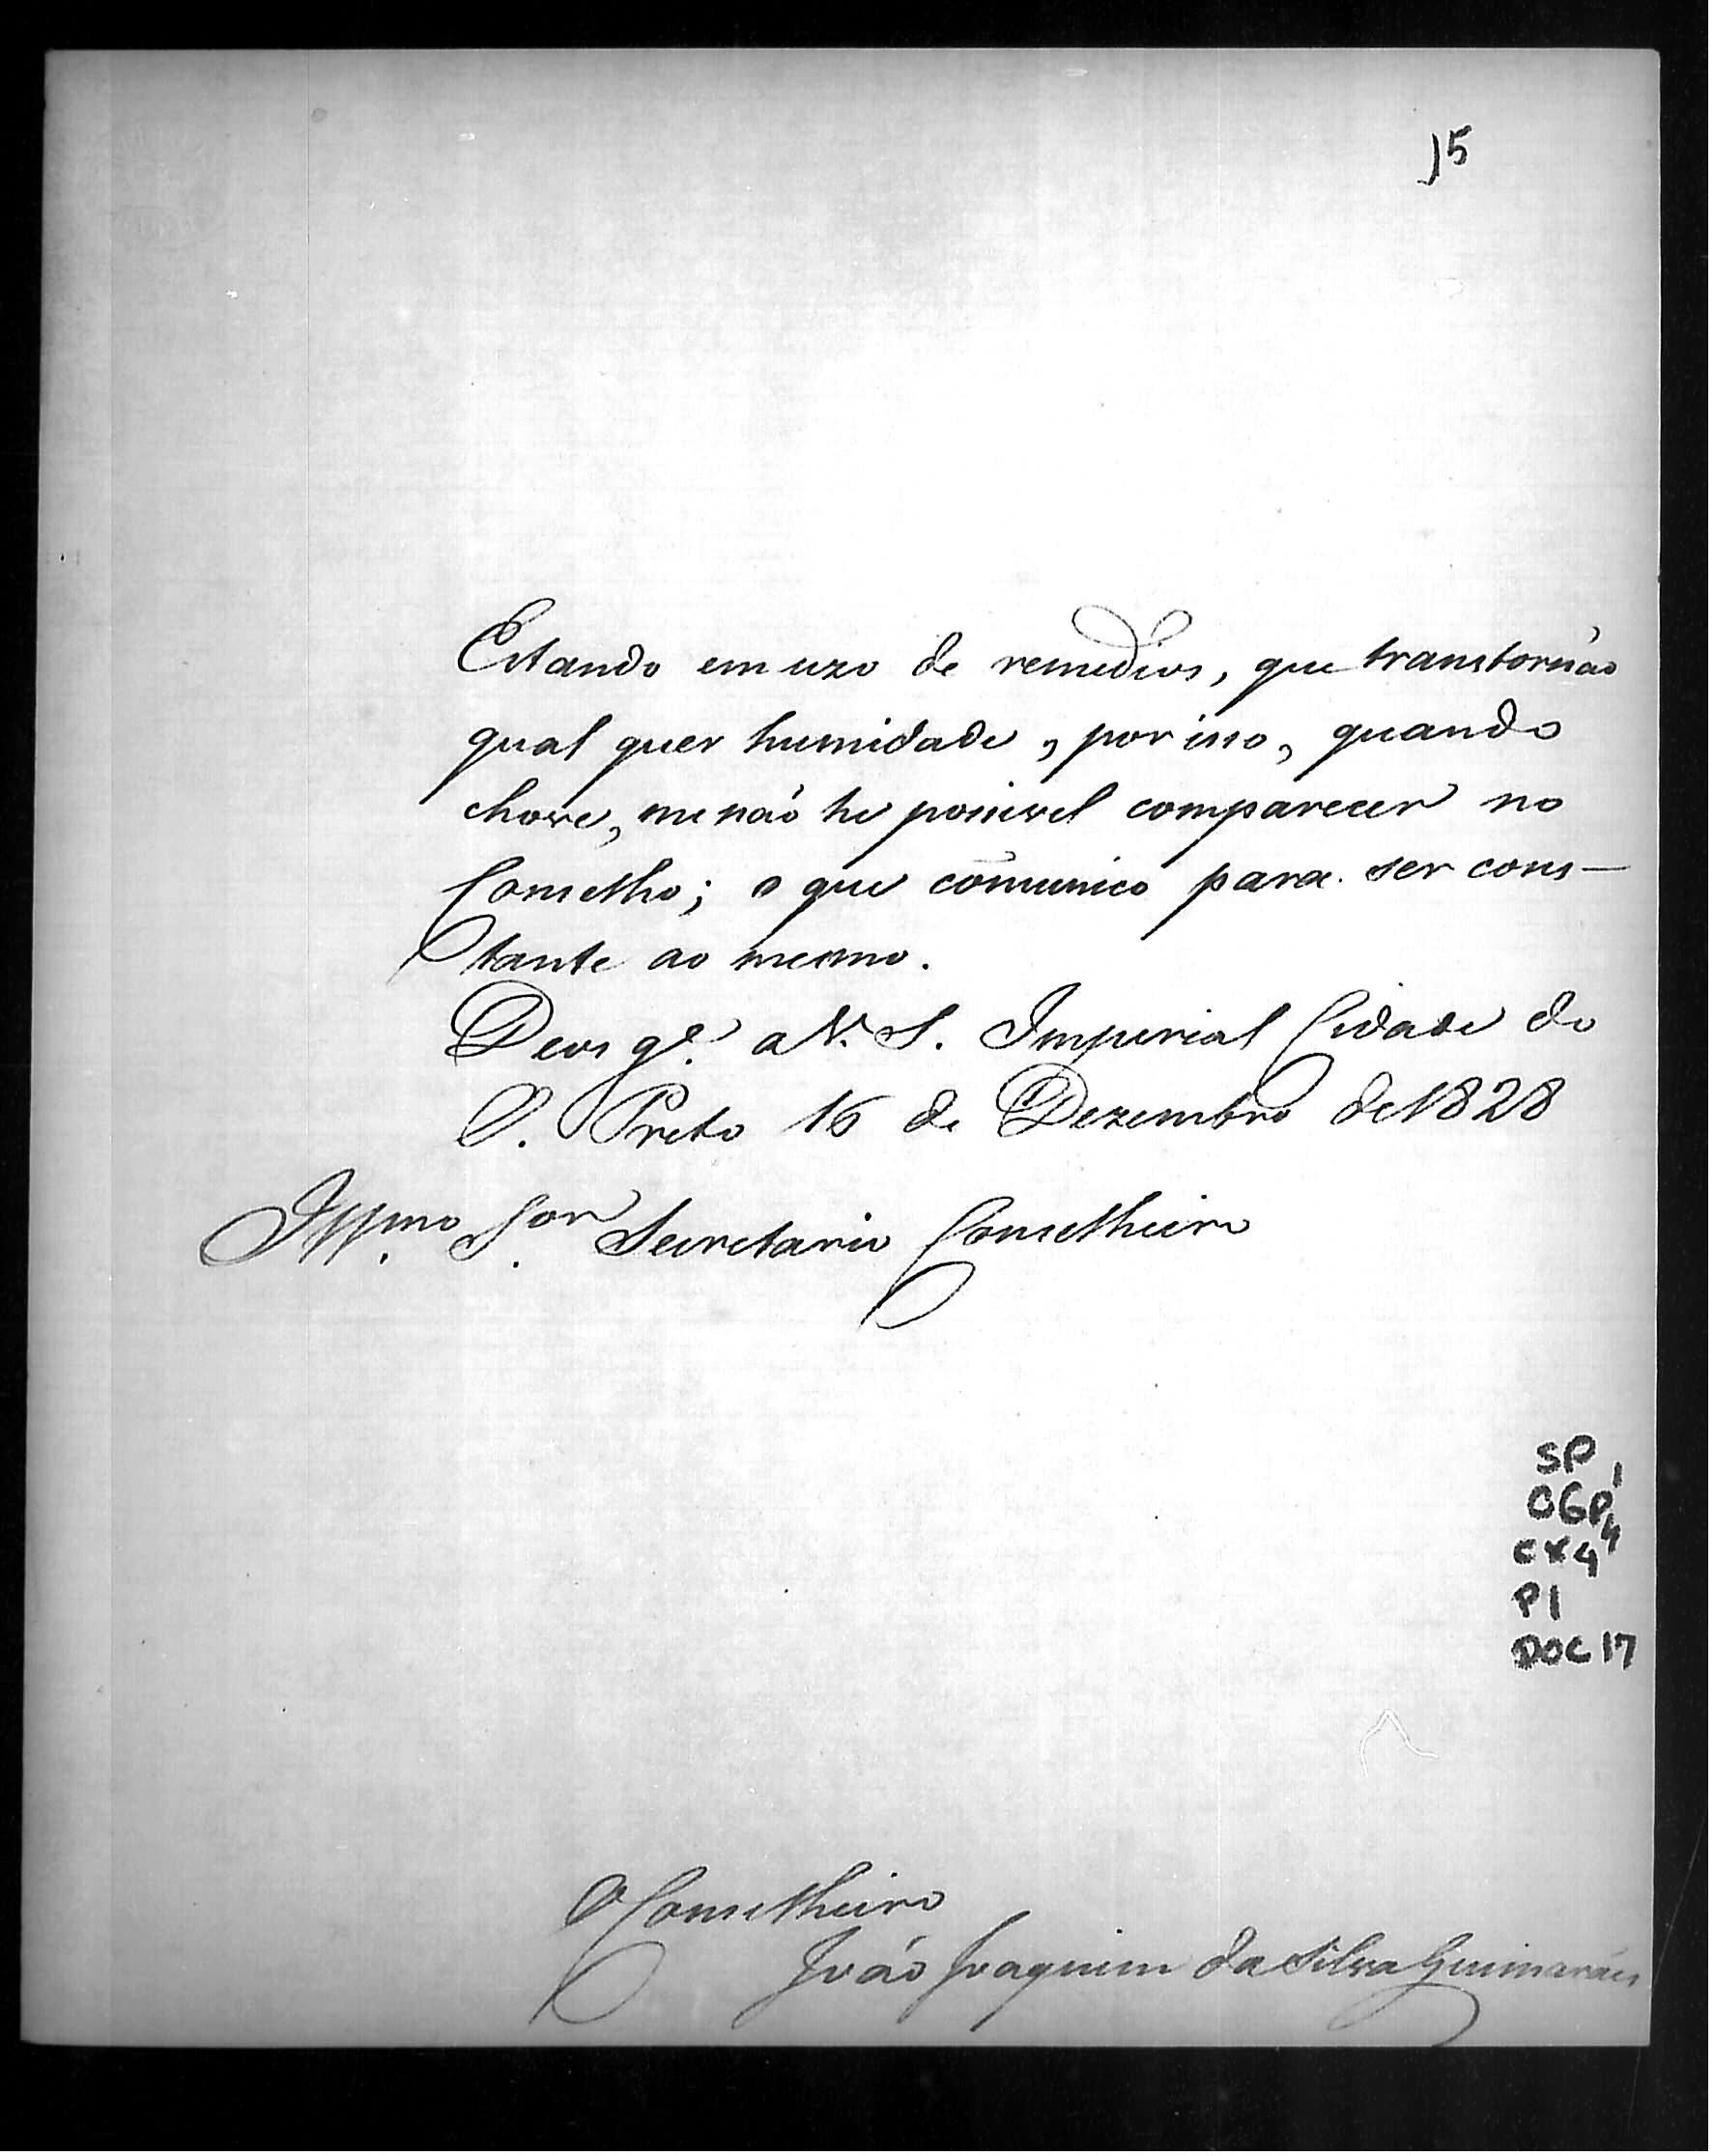 15
Estando em uzo de remedios, que transtornáo
qual quer humidade, por isso, quando
chove, me náo he possivel comparecer no
Conselho; o que cōmunico para ser cons-
tante ao mesmo.
Deos g.e a V. S. Imperial Cidade do
O. Preto 16 de Dezembro de 1828
Ill.mo S.or Secretario Conselheiro
SP 1
OGP
CX 4
P1
DOC 17
O Conselheiro
Joáo Joaquim da Silva Guimaráes